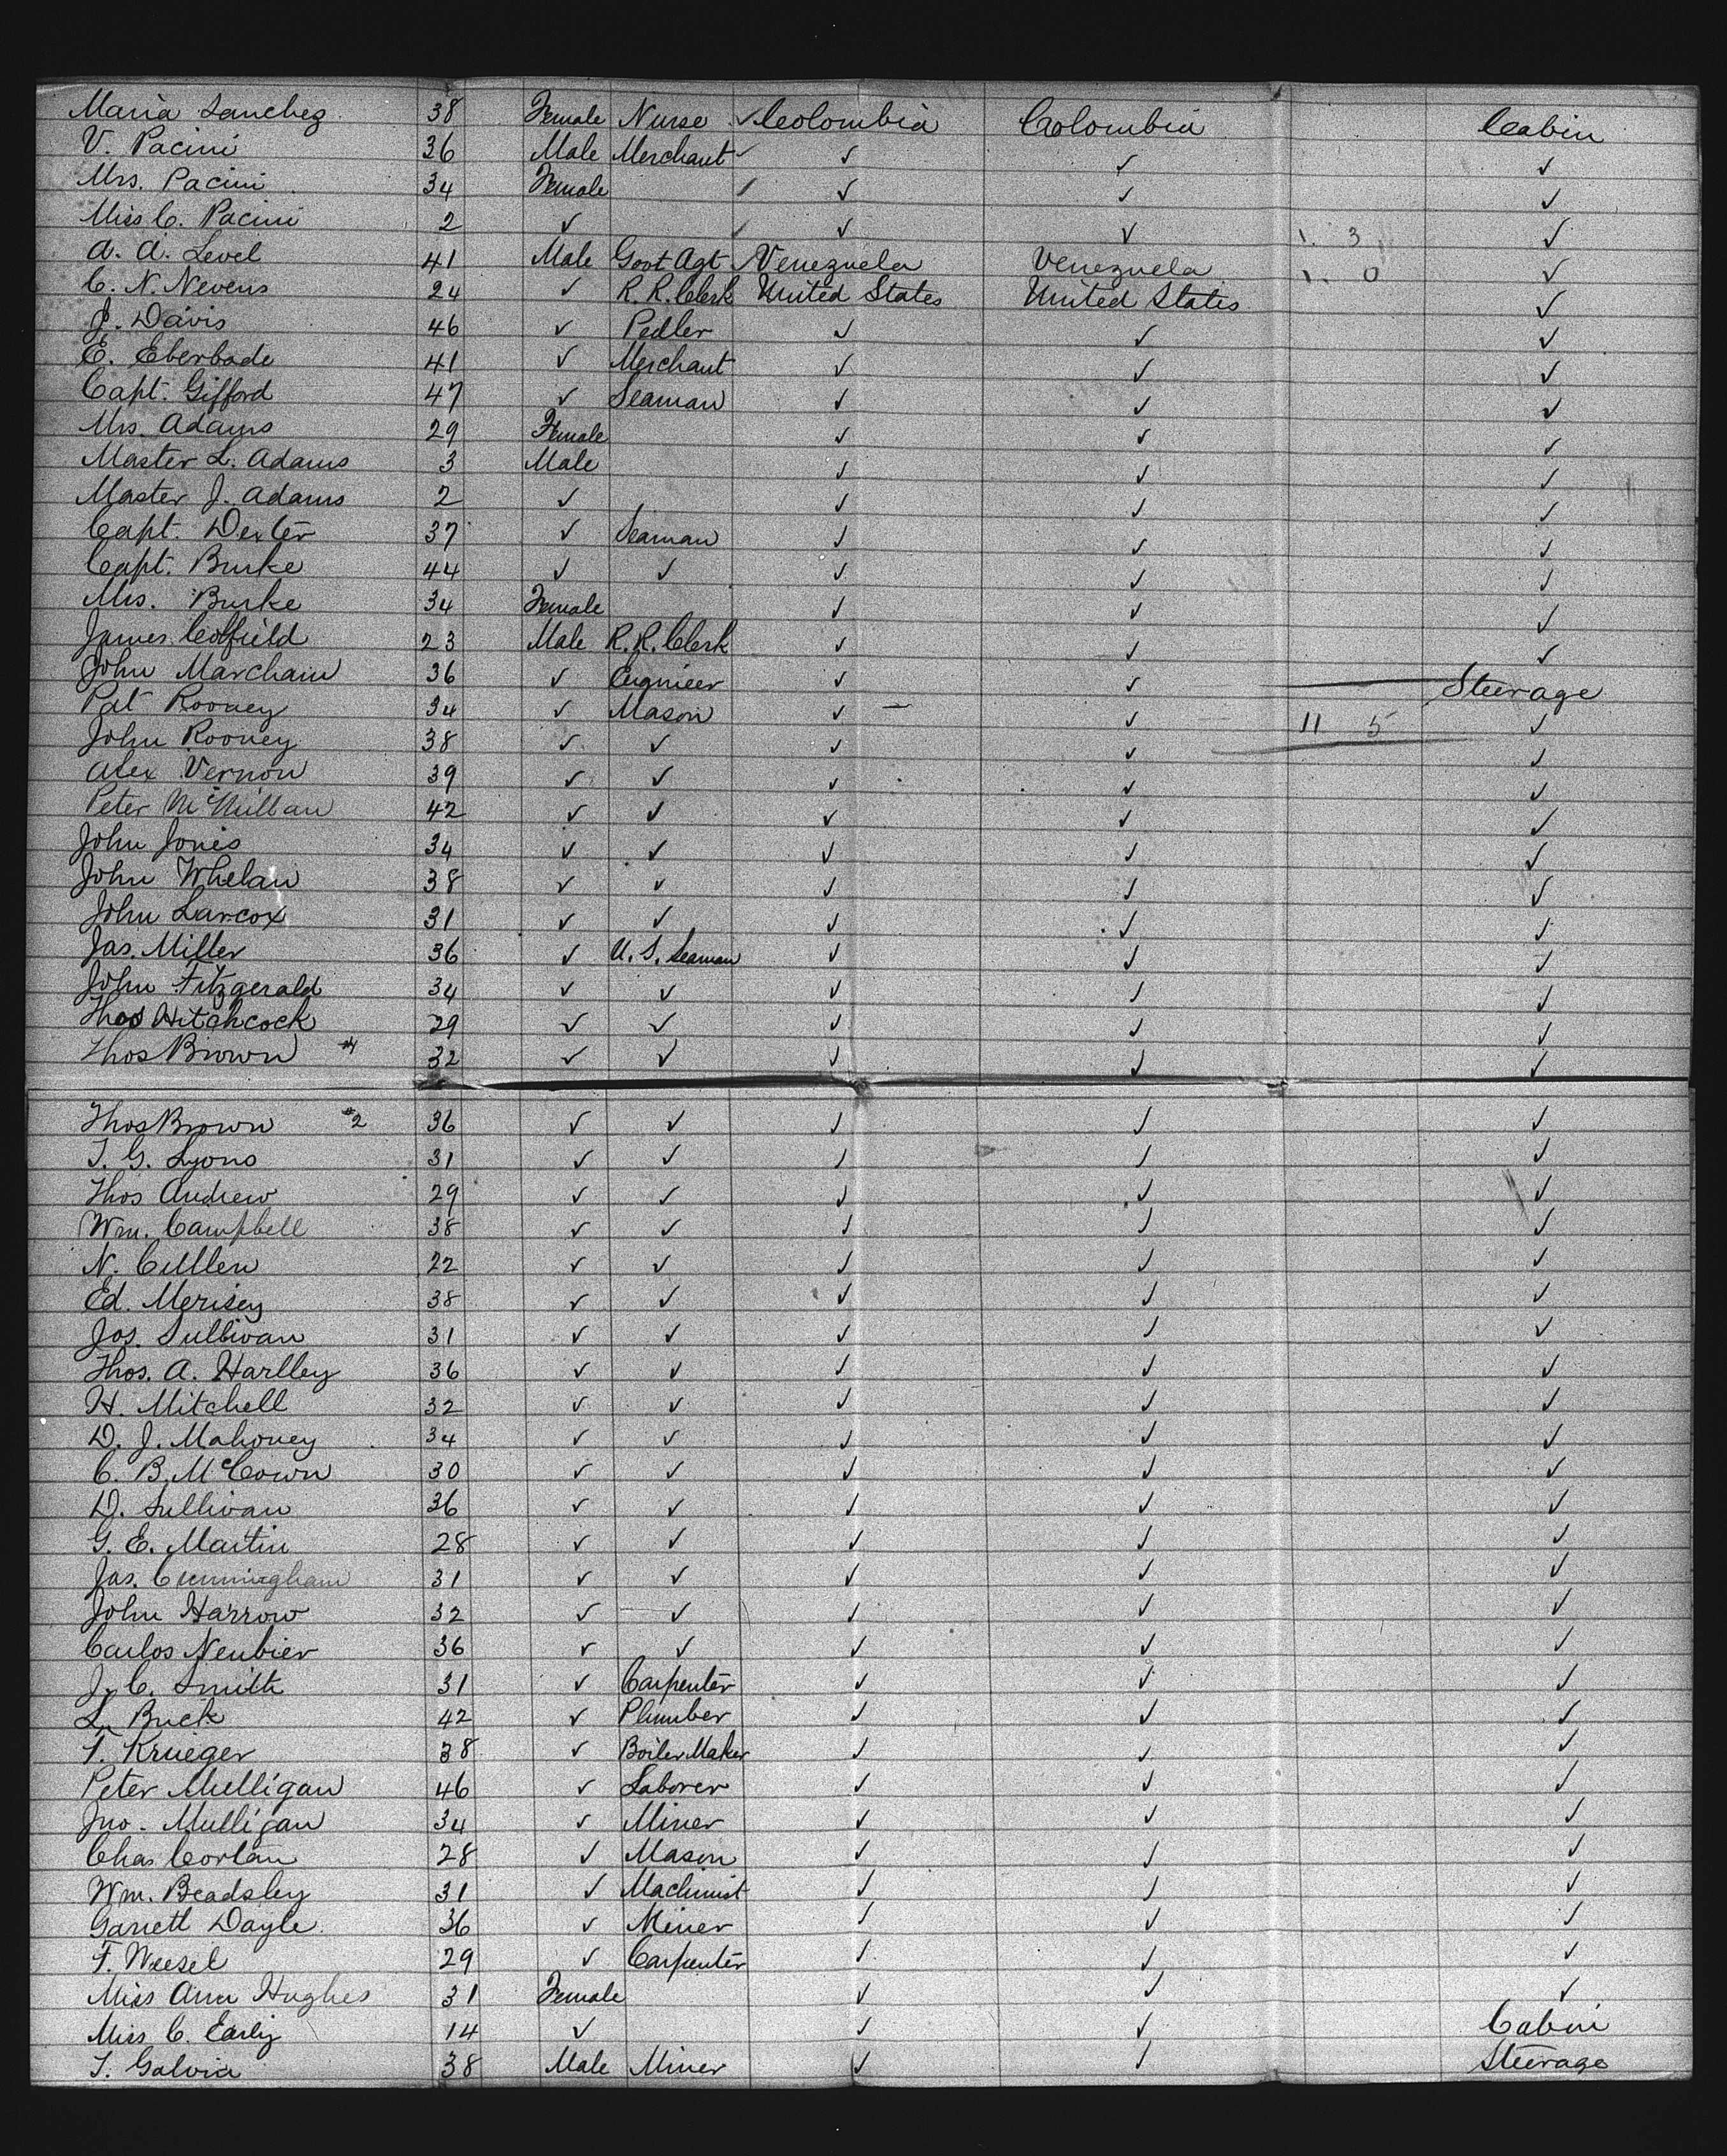 Maria Sanchez 38 Female Nurse ✓ Colombia Colombia Cabin
V. Pacini 36 Male Merchant ✓ ✓ ✓ ✓
Mrs. Pacini 34 Female ✓ ✓ ✓
Miss C. Pacini 2 ✓ ✓ ✓ 1. 3 ✓
A. A. Level 41 Male Govt Agt ✓ Venezuela Venezuela 1. 0 ✓
C. N. Nevens 24 ✓ R. R. Clerk United States United States ✓
J. Davis 46 ✓ Pedler ✓ ✓ ✓
E. Eberbade 41 ✓ Merchant ✓ ✓ ✓
Capt. Gifford 47 ✓ Seaman ✓ ✓ ✓
Mrs. Adams 29 Female ✓ ✓ ✓
Master L. Adams 3 Male ✓ ✓ ✓
Master J. Adams 2 ✓ ✓ ✓ ✓
Capt. Dexter 37 ✓ Seaman ✓ ✓ ✓
Capt. Burke 44 ✓ ✓ ✓ ✓ ✓
Mrs. Burke 34 Female ✓ ✓ ✓
James Colfield 23 Male R. R. Clerk ✓ ✓ ✓
John Marchain 36 ✓ Engineer ✓ ✓ Steerage
Pat Rooney 34 ✓ Mason ✓ ✓ 11 5 ✓
John Rooney 38 ✓ ✓ ✓ ✓ ✓
Alex Vernon 39 ✓ ✓ ✓ ✓ ✓
Peter McMillan 42 ✓ ✓ ✓ ✓ ✓
John Jones 34 ✓ ✓ ✓ ✓ ✓
John Whelan 38 ✓ ✓ ✓ ✓ ✓
John Larcox 31 ✓ ✓ ✓ ✓ ✓
Jas. Miller 36 ✓ U. S. Seaman ✓ ✓ ✓
John Fitzgerald 34 ✓ ✓ ✓ ✓ ✓
Thos Hitchcock 29 ✓ ✓ ✓ ✓ ✓
Thos Brown 32 ✓ ✓ ✓ ✓ ✓
Thos Brown #2 36 ✓ ✓ ✓ ✓ ✓
T. G. Lyons 31 ✓ ✓ ✓ ✓ ✓
Thos Andrew 29 ✓ ✓ ✓ ✓ ✓
Wm. Campbell 38 ✓ ✓ ✓ ✓ ✓
N. Cullen 22 ✓ ✓ ✓ ✓ ✓
Ed. Merisey 38 ✓ ✓ ✓ ✓ ✓
Jos. Sullivan 31 ✓ ✓ ✓ ✓ ✓
Thos. A. Harlley 36 ✓ ✓ ✓ ✓ ✓
H. Mitchell 32 ✓ ✓ ✓ ✓ ✓
D. J. Mahoney 34 ✓ ✓ ✓ ✓ ✓
C. B. McCown 30 ✓ ✓ ✓ ✓ ✓
D. Sullivan 36 ✓ ✓ ✓ ✓ ✓
G. E. Martin 28 ✓ ✓ ✓ ✓ ✓
Jas. Cunningham 31 ✓ ✓ ✓ ✓ ✓
John Harrow 32 ✓ ✓ ✓ ✓ ✓
Carlos Neubier 36 ✓ ✓ ✓ ✓ ✓
J. C. Smith 31 ✓ Carpenter ✓ ✓ ✓
L. Buck 42 ✓ Plumber ✓ ✓ ✓
T. Krueger 38 ✓ Boiler Maker ✓ ✓ ✓
Peter Mulligan 46 ✓ Laborer ✓ ✓ ✓
Jno. Mulligan 34 ✓ Miner ✓ ✓ ✓
Chas Corlan 28 ✓ Mason ✓ ✓ ✓
Wm. Beadsley 31 ✓ Machinist ✓ ✓ ✓
Garrett Dayle 36 ✓ Miner ✓ ✓ ✓
F. Weesel 29 ✓ Carpenter ✓ ✓ ✓
Miss Ann Hughes 31 Female ✓ ✓ ✓
Miss C. Early 14 ✓ ✓ ✓ Cabin
T. Galvin 38 Male Miner ✓ ✓ Steerage